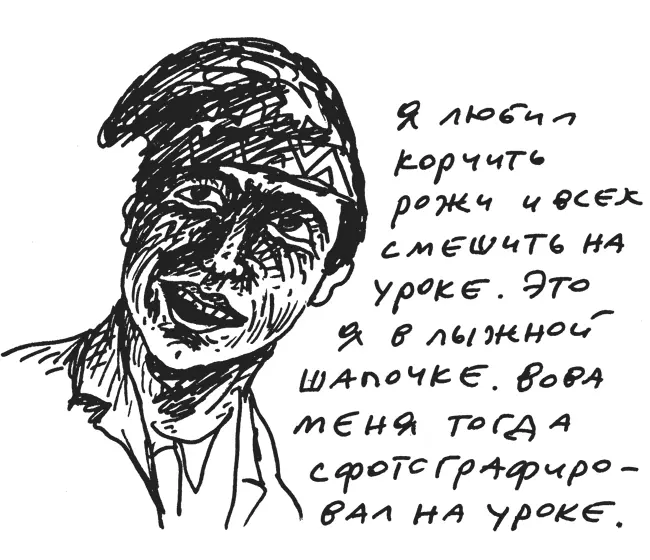 Я любил
корчить
рожи и всех
смешить на
уроке. Это
я в лыжной
шапочке. Вова
меня тогда
сфотографиро-
вал на уроке.